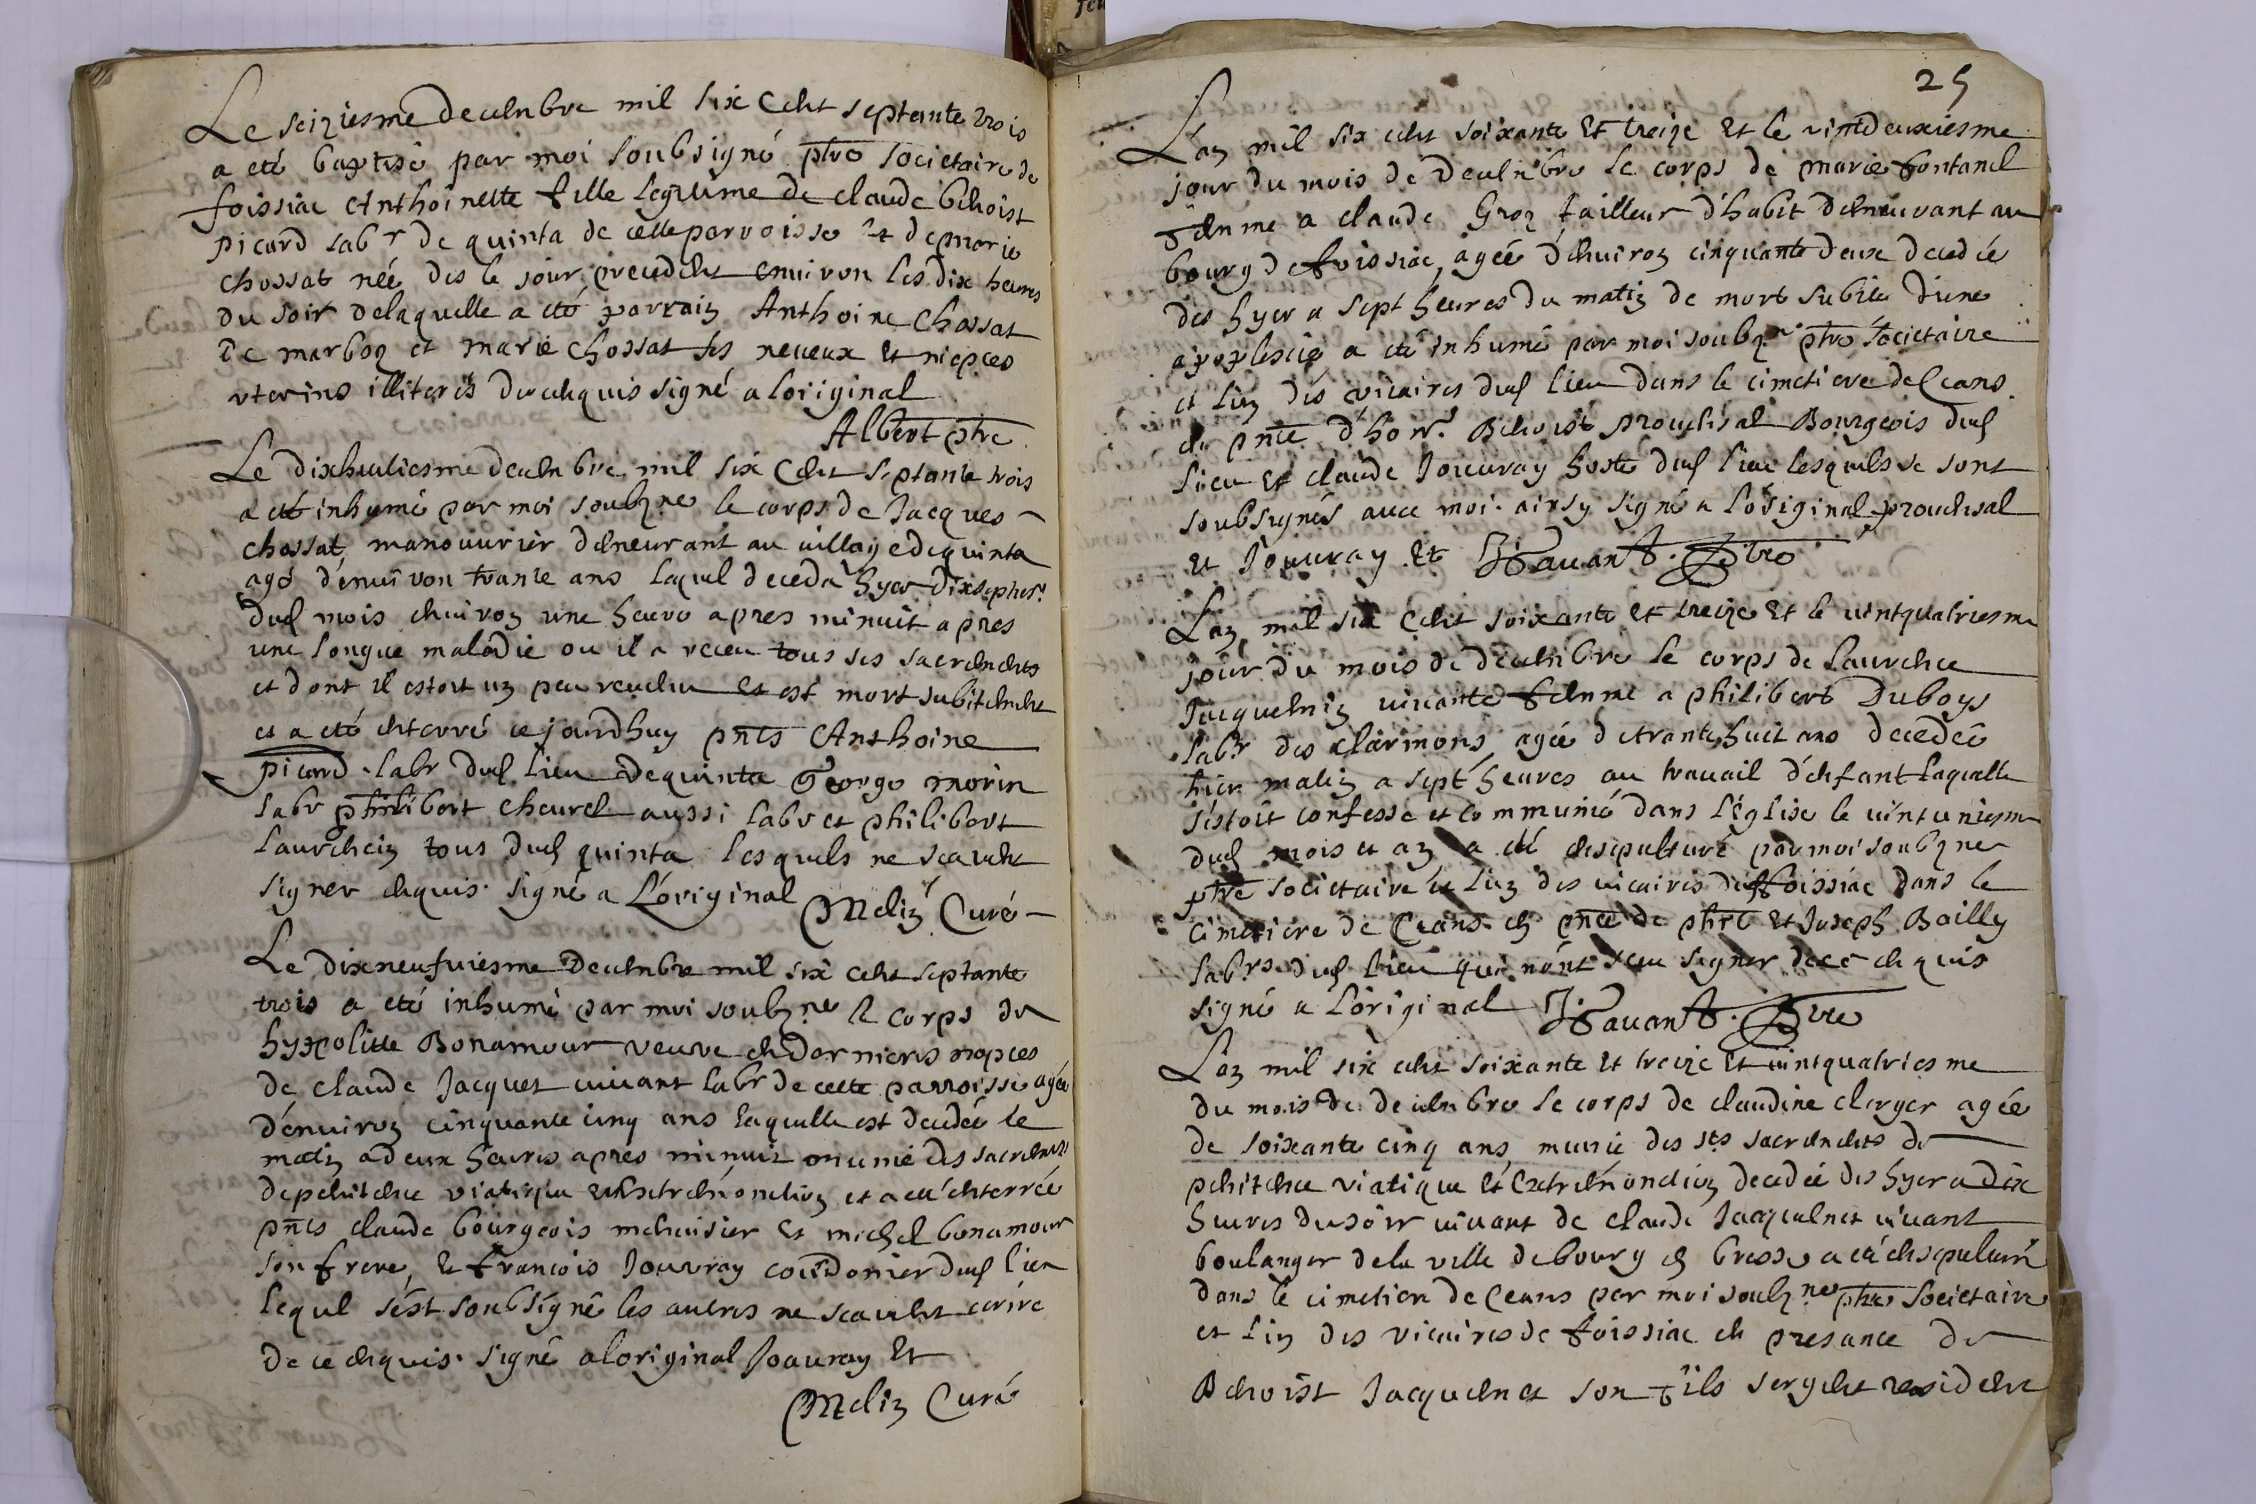 Le seiziesme decembre mil six cent septante trois
a eté baptisé par moi soubsigné ptre societaire de
foissiac Anthoinette fille legitime de claude benoist
picard labr de quinta de cette parroisse et de marie
chossat née des le jour precedent environ les dix heures
du soir de laquelle a eté parrain Anthoine Chossat
De marboz et marie chossat ses neveux et niepces
uterins illiteres de ce enquis signé a loriginal
Albert ptre
Le dixhuitiesme decembre mil six cent septante trois
a eté inhumé par moi soubzne le corps de Jacques
chossat, manouvrier demeurant au village de quinta
agé d'environ trante ans laquel deceda hyer dixseptiesme
dud mois environ une heure apres minuit apres
une longue maladie ou il a receu tous ses sacrements
et dont il estoit un peu revenu et est mort subitement
et a eté enterré ce jourdhuy pnts Anthoine
picard labr dud lieu de quinta George morin
labr philibert chevrel aussi labr et philibert
laurencin tous dud quinta lesquels ne scavent
signer enquis. signé a L'original Melin Curé
Le dixneufviesme Decembre mil six cent septante
trois a eté inhumé par moi soubzne le corps de
hyppolitte Bonamour veuve en dernieres nopces
de claude Jacquet vivant labr de cette parroisse agée
d'environ cinquante cinq ans laquelle est decedée le
matin a deux heures apres minuit munie des sacrements
de penitence viatique et extremonction et a eté enterrée
pnts claude bourgeois menuisier et michel bonamour
son frere, et francois Jouvray courdonier dud lieu
lequel s'est soubsigné les autres ne scavent ecrire
de ce enquis. signé a loriginal Joauray et
Melin Curé
25
L'an mil six cent soixante et treize et le vintdeuxiesme
jour du mois de decembre le corps de marie fontanel
femme a claude Groz tailleur d'habit demeurant au
bourg de foissiac, agée d'environ cinquante deux decedée
des hyer a sept heures du matin de mort subite d'une
apoplexie a eté inhumé par moi soubzne ptre societaire
et l'un des vicaires dud lieu dans le cimetiere de ceans
en pnce d'hon. Benoist prouchsal Bourgeois dud
lieu et claude Jouuray hoste dud lieu lesquels se sont
soubsignés avec moi. ainsy signé a l'original prouchsal
et Jouuray et Havant. Ptre
L'an mil six cent soixante et treize et le vintquatriesme
jour du mois de decembre le corps de laurence
Jacquemin vivante femme a philibert Duboys
labr des clarmons agée de trante huit ans decedée
hier matin a sept heures au travail d'enfant laquelle
s'estoit confessé et communié dans l'église le vintuniesme
dud mois et an a eté ensepulturé par moi soubzne
ptre societaire et l'un des vicaires de foissiac dans le
cimetiere de ceans en pnce de phre et Joseph Bailly
labrs dud lieu qui n'ont sceu signer de ce enquis
signé a l'original Havant. Ptre
L'an mil six cent soixante et treize et vintquatriesme
du mois de decembre le corps de claudine clerger agée
de soixante cinq ans munie des sts sacrements de
penitence viatique et extremonction decedée des hyer a dix
heures du soir vivant de claude Jacquemet vivant
boulanger de la ville de bourg en bresse a eté ensepulturé
dans le cimetiere de ceans par moi soubzne ptre societaire
et l'un des vicaires de foissiac en presance de
Benoist Jacquemet son fils sergent resident